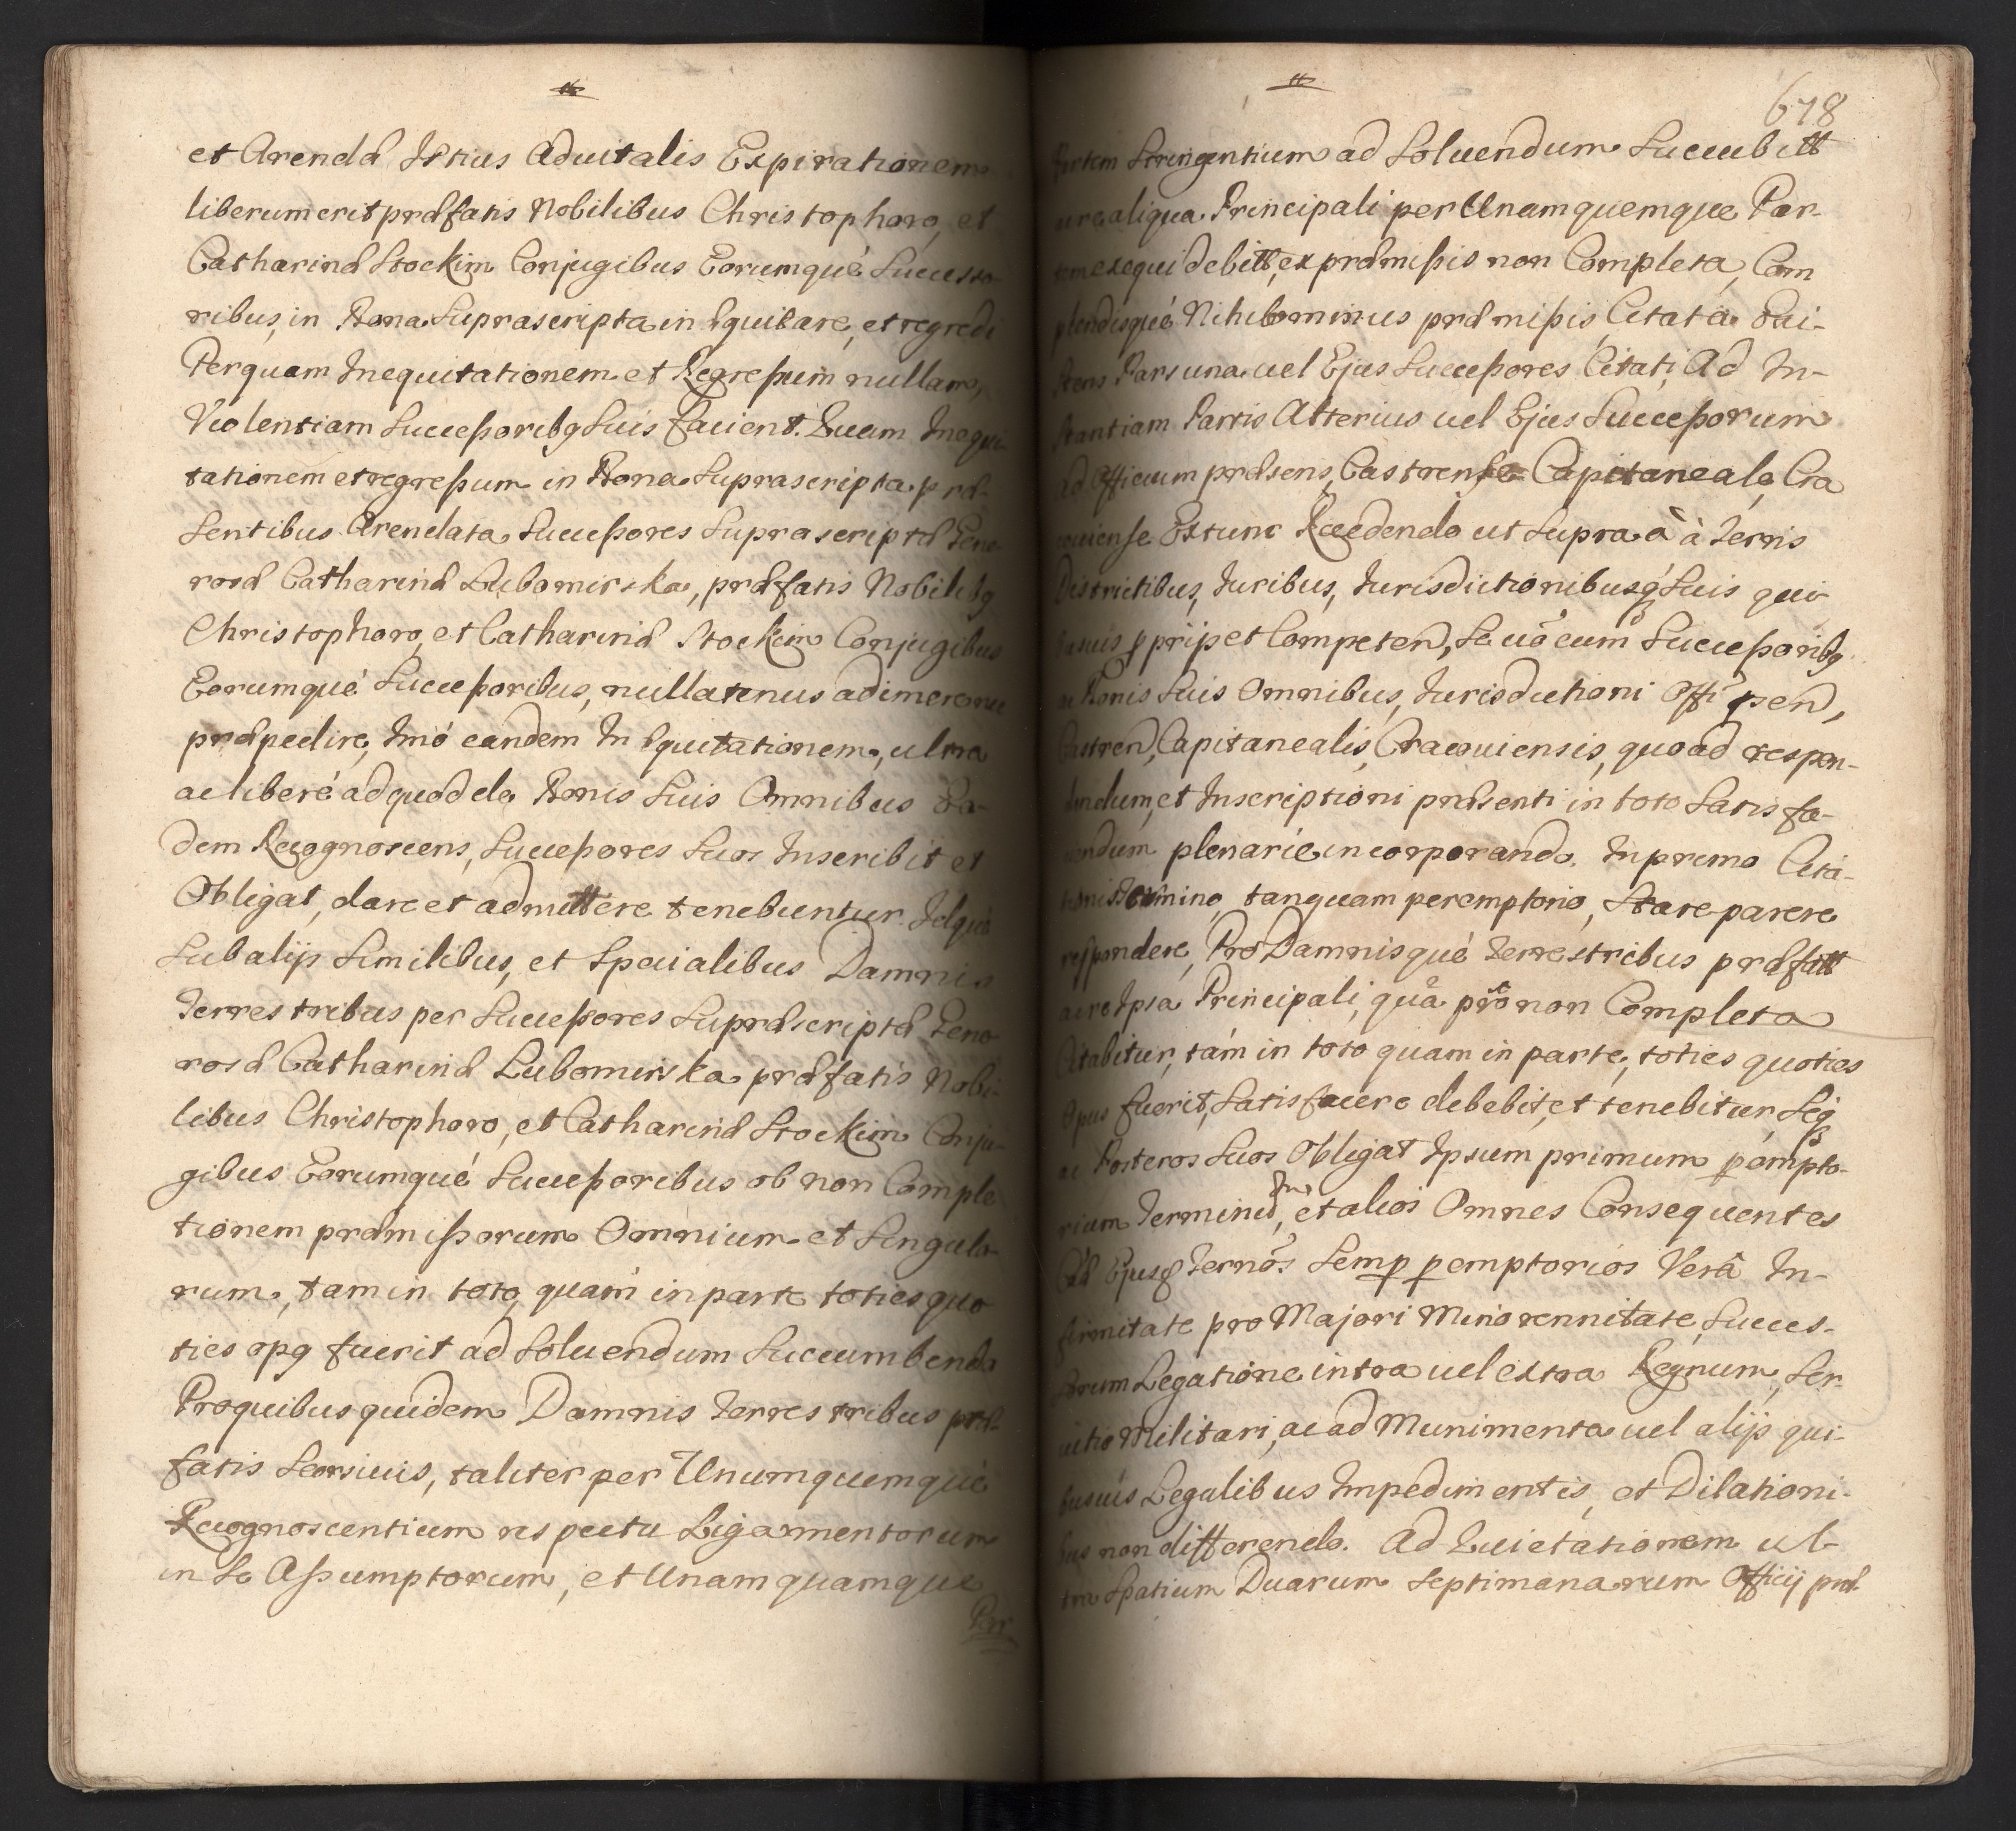 et Arendæ Istius Aduitalis Expirationem
liberum erit præfatis Nobilibus Christophoro, et
Catharinæ Stockim Conjugibus Eorumqué Successo
ribus, in Bona Suprascripta in Equitare, et regredi
Per quam Inequitationem et Regreßum nullam,
Violentiam Succeßoribq Suis facient. Quam Inequi
tationem et regreßum in Bona Suprascripta præ-
sentibus Arendata Succeßores Suprascriptæ Gene
rosæ Catharinæ Lubomirska, præfatis Nobilibq
Christophoro, et Catharinæ Stockim Conjugibus
Eorumqué Succeßoribus, nullatenus adimere nec
præpedire, Imó eandem In Equitationem, ultra
ac liberé ad quod de Bonis Suis Omnibus Ea-
dem Recognoscens, Succeßores Suos Inscribit et
Obligat, dare et admittere tenebuntur. Idqué
Sub alijs Similibus, et Specialibus Damnis
Terrestribus per Succeßores Supræscriptæ Gene
rosæ Catharinæ Lubomirska præfatis Nobi-
libus Christophoro, et Catharinæ Stockim Conju-
gibus Eorumqué Succeßoribus ob non Comple
tionem præmißorum Omnium et Singulo
rum, tam in toto, quam in parte toties quo
ties opq fuerit ad Soluendum Succumbendo
Pro quibus quidem Damnis Terrestribus præ-
fatis Seorsiuis, taliter per Unumquemqué
Recognoscentium respectu Ligamentorum
in Se Aßumptorum, et Unamquamque
Par
678
Partem Stringentium ad Soluendum Succubitt
ac re aliqua Principali per Unamquemque Par-
tem exequi debitt, ex præmißis non Completa, Com
plendisqué Nihilominus præmißis, Citata Exi-
stens Pars una uel Ejus Succeßores Citati, Ad In-
stantiam Partis Alterius uel Ejus Succeßorum
ad Officium præsens, Castrense Capitaneale, Cra
couiense Extunc Recedendo ut Supra à à Terris
Districtibus, Iuribus, Iurisdictionibusq Suis qui
busuis ppriis et Competen, Se uó cum Succeßoribq
ac Bonis Suis Omnibus, Iurisdictioni Offi psen,
Castren, Capitanealis, Cracouiensis, quo ad respon-
dendum, et Inscriptioni præsenti in toto Satis fa-
ciendum plenarié incorporando. In primo Cita-
tionis Termino, tanquam peremptorio, Stare parere
respondere, Pro Damnisqué Terrestribus præfatt
ac re Ipsa Principali, quâ pro non Completa
Citabitur, tám in toto quam in parte, toties quoties
Opus fuerit, Satisfacere debebit, et tenebitur, Seq
ac Posteros Suos Obligat Ipsum primum pempto-
rium Terminum, et alios Omnes Consequentes
Ad Ejusq Ternos Semp pemptorios Verâ In-
firmitate pro Majori Minorennitate, Succes-
sorum Legatione intra uel extra Regnum, Ser-
uitio Militari, ac ad Munimenta uel alijs qui-
busuis Legalibus Impedimentis, et Dilationi-
bus non differendo. Ad Quietationem ul-
tra Spatium Duarum Septimanarum Officij præ-